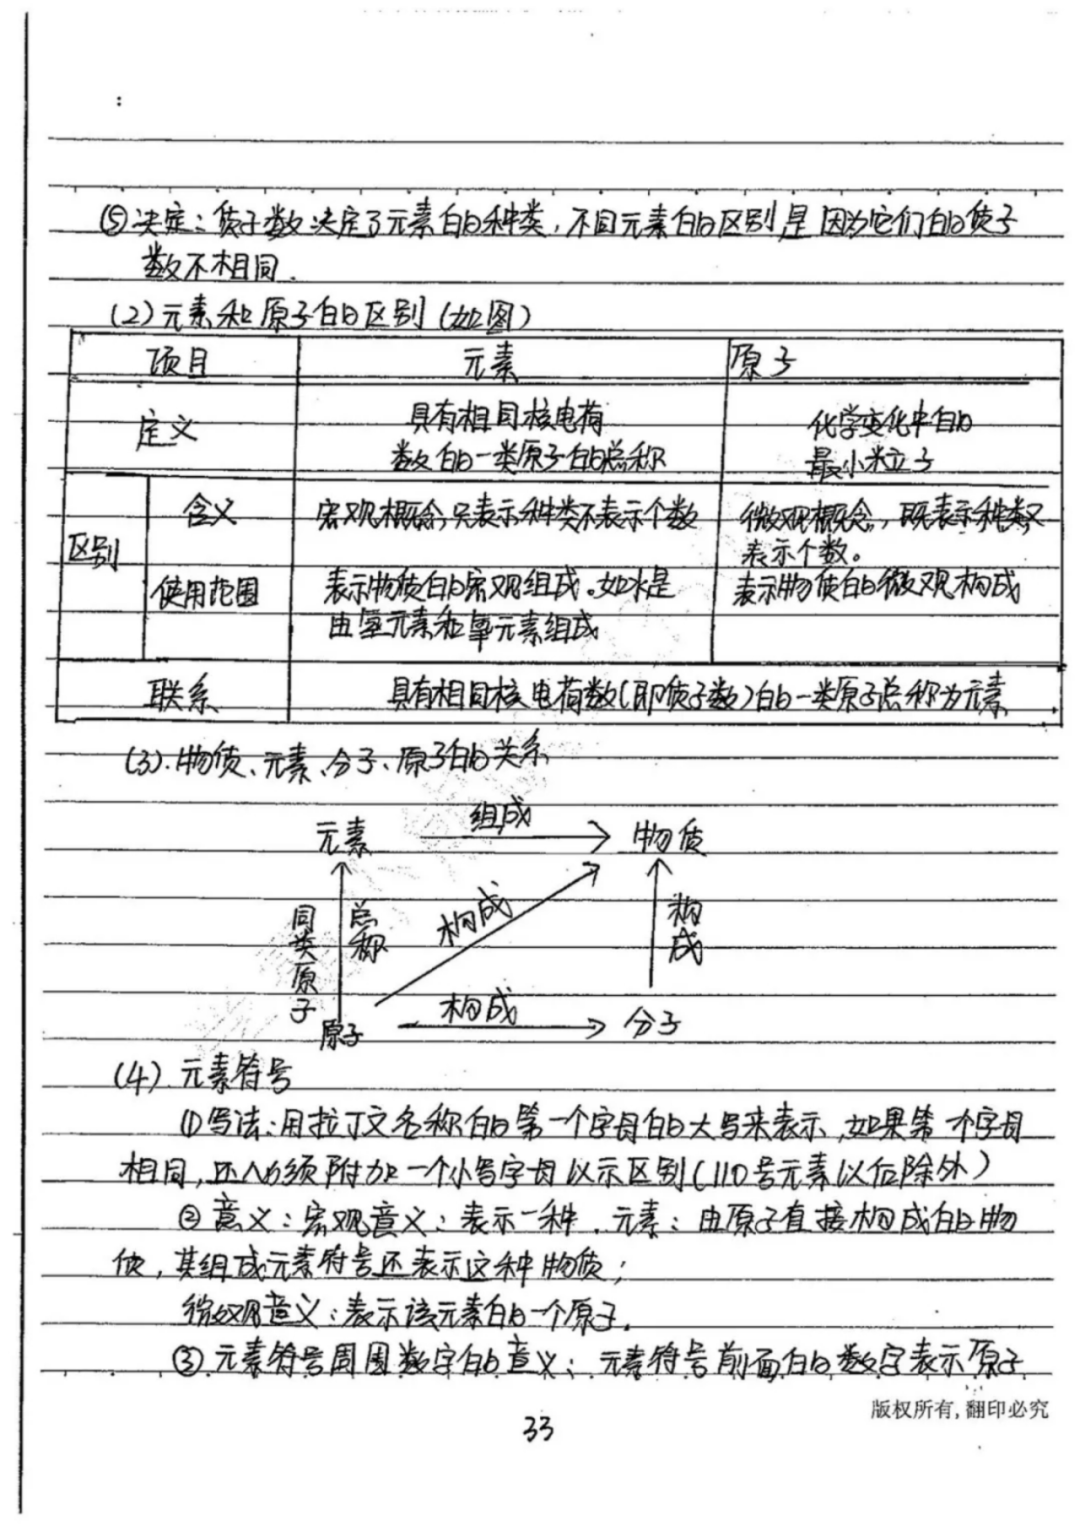 ⑤决定：质子数决定了元素的种类，不同元素的区别是因为它们的质子
数不相同.
(2)元素和原子的区别(如图)
项目 元素 原子
定义 具有相同核电荷 化学变化中的
数的一类原子的总称 最小粒子
区别 含义 宏观概念,只表示种类不表示个数 微观概念，既表示种类又
表示个数。
使用范围 表示物质的宏观组成。如水是 表示物质的微观构成
由氢元素和氧元素组成
联系 具有相同核电荷数(即质子数)的一类原子总称为元素
(3).物质、元素、分子、原子的关系
元素 组成 物质
同类原子 总称 构成 构成
原子 构成 分子
(4).元素符号
①写法：用拉丁文名称的第一个字母的大写来表示,如果第一个字母
相同,还必须附加一个小写字母以示区别(110号元素以后除外)
②意义：宏观意义：表示一种.元素；由原子直接构成的物
质，其组成元素符号还表示这种物质；
微观意义：表示该元素的一个原子.
③元素符号周围数字的意义；元素符号前面的数字表示原子
版权所有,翻印必究
33